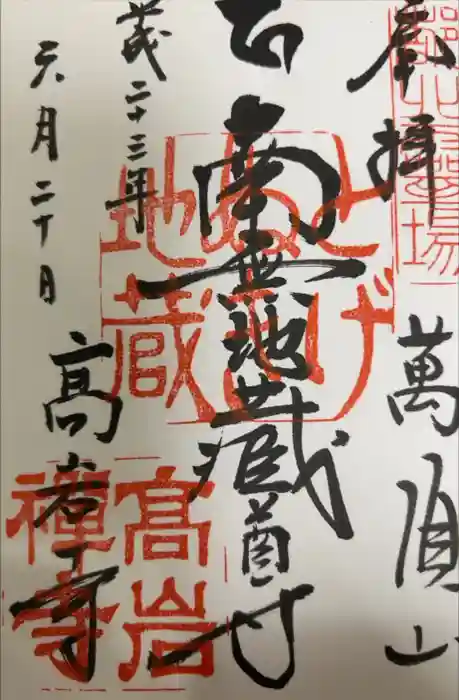 奉拝
萬頂山
南無地蔵尊
成二十三年
六月二十日
高岩寺
とげぬき地蔵
高岩禅寺
霊場